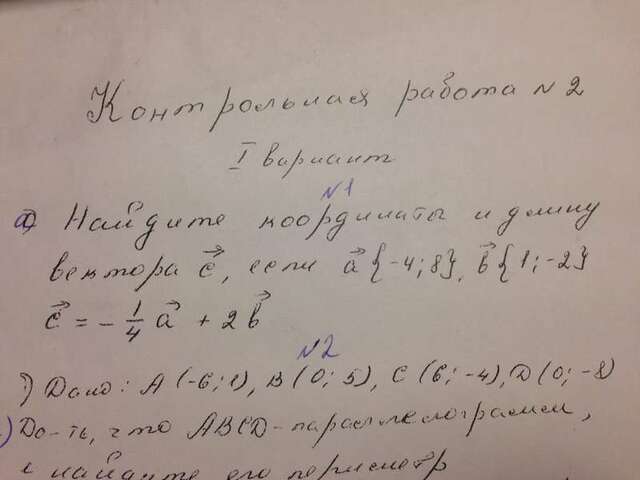 Контрольная работа № 2
I вариант
№1
а) Найдите координаты и длину
вектора c⃗, если a⃗ {-4; 8}, b⃗ {1; -2}
c⃗ = - 1/4 a⃗ + 2 b⃗
№2
Дано: А (-6; 1), В (0; 5), С (6; -4), D (0; -8)
До-ть, что ABCD - параллелограмм,
и найдите его периметр